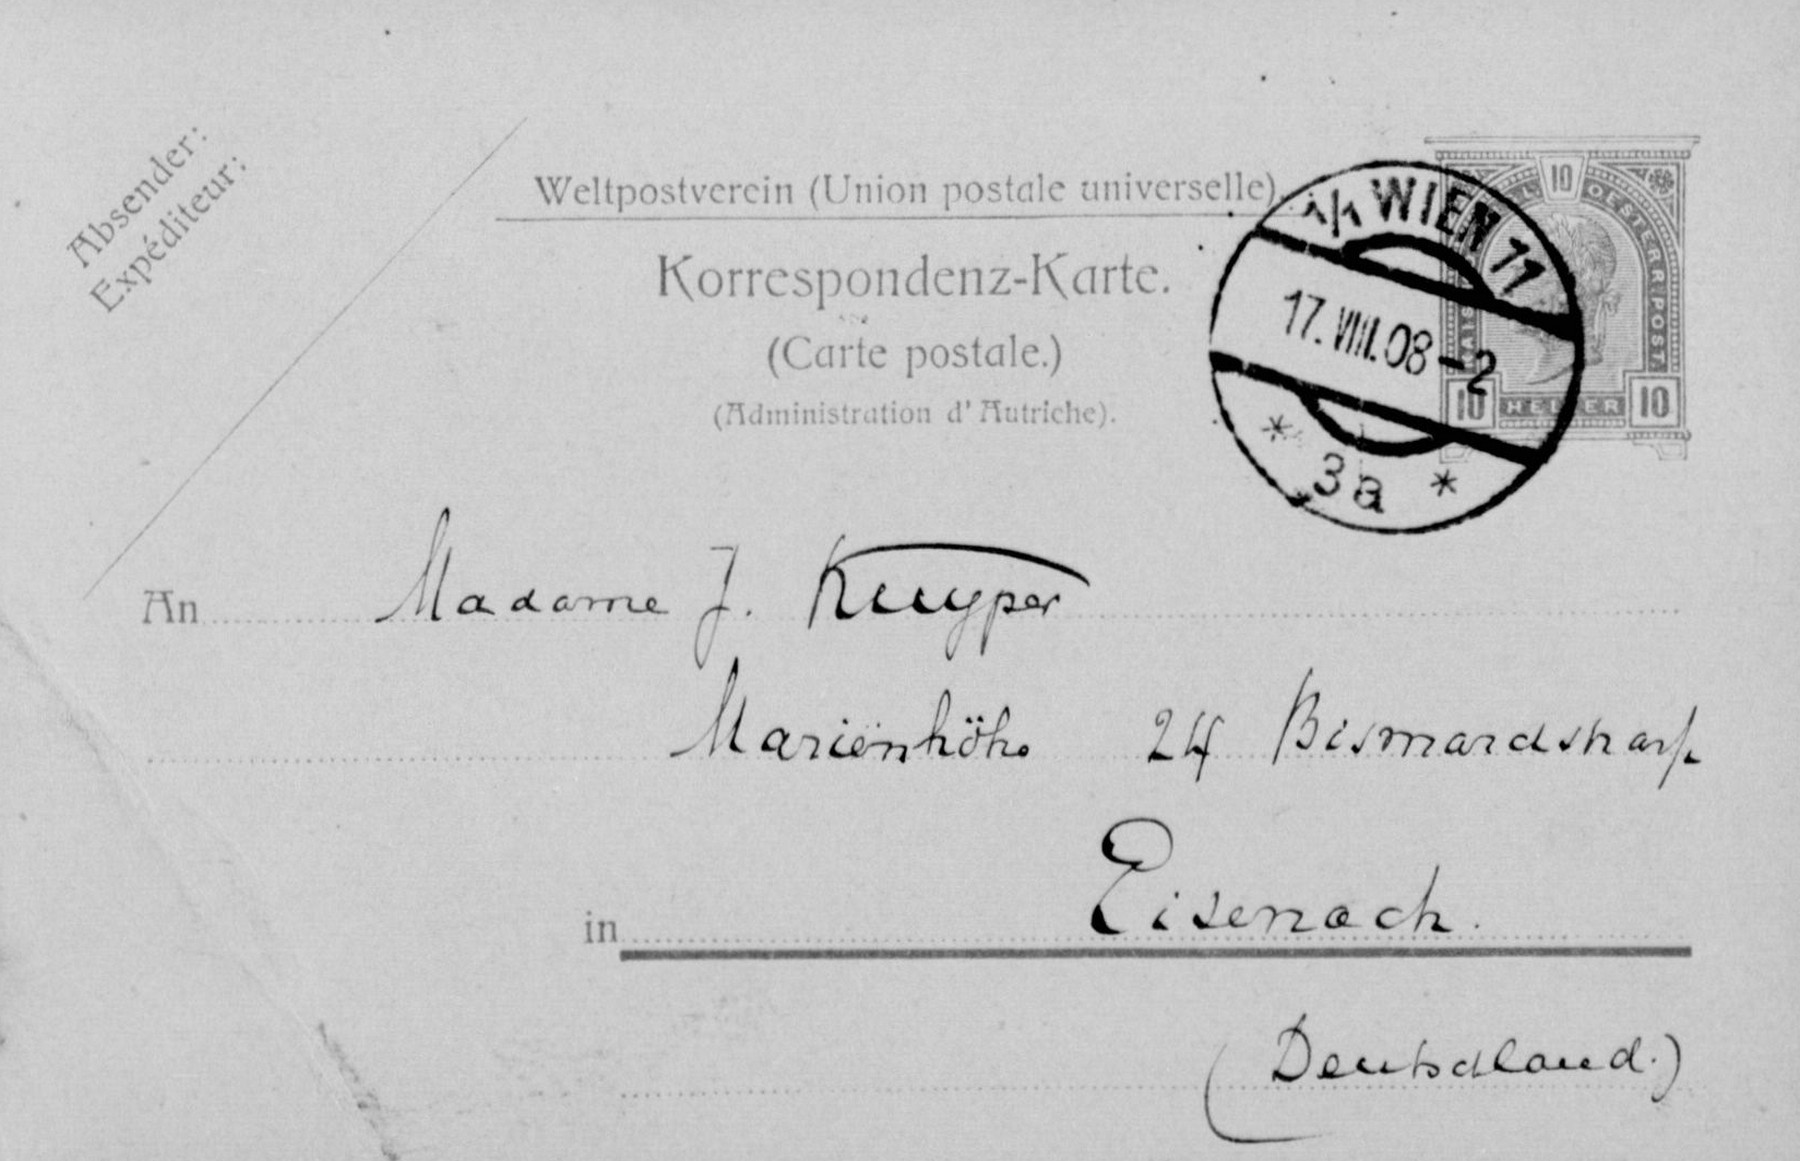 Absender:
Expéditeur:
Weltpostverein (Union postale universelle).
Korrespondenz-Karte.
(Carte postale.)
(Administration d'Autriche).
1/1 WIEN 11
17. VIII. 08 - 2
* 3a *
10
OESTERR POST.
10 HELLER 10
An Madame J. Kuyper
Mariënhöhe 24 Bismarckstrasse
in Eisenach.
(Deutschland.)